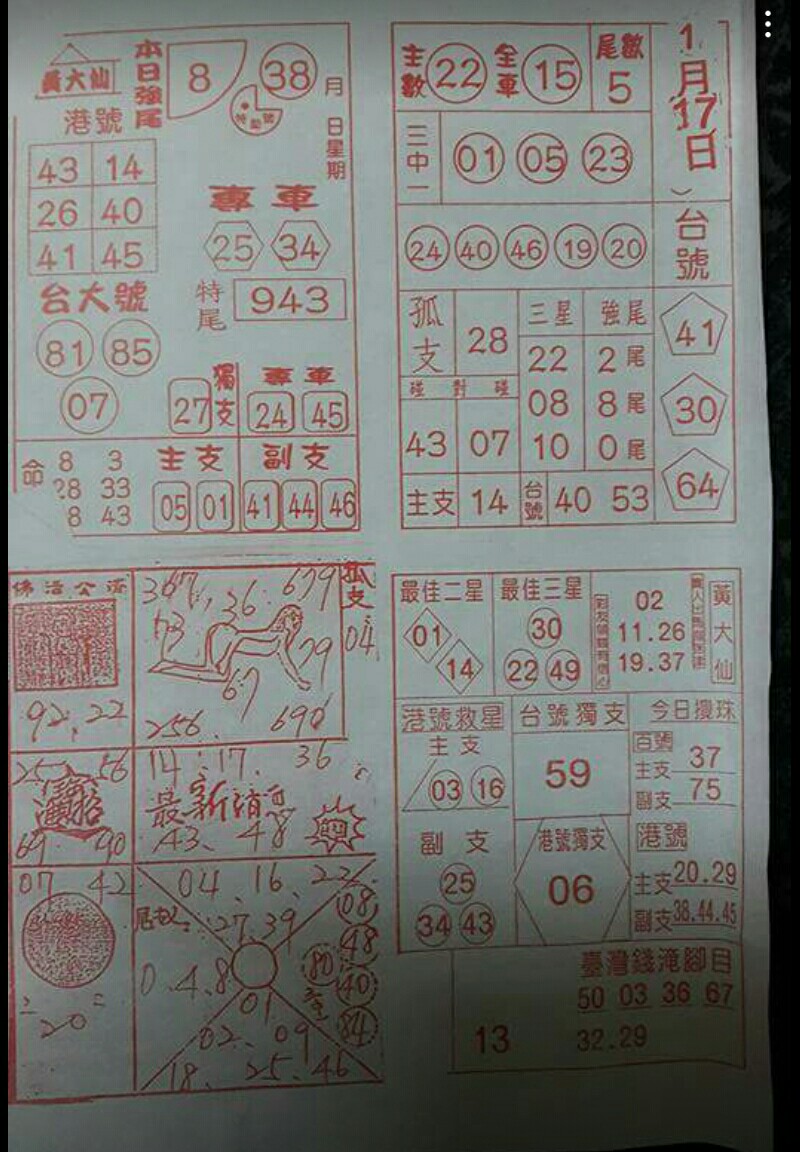 黃大仙
本日強尾
8
38
月 日星期
港號
43 14
26 40
41 45
專車
25 34
台大號
特尾 943
81 85
07
獨支 27
專車
24 45
命
8 3
28 33
8 43
主支
05 01
副支
41 44 46
主數 22
全車 15
尾數 5
1月17日
三中一
01 05 23
24 40 46 19 20
台號
41
30
64
孤支 28
三星 強尾
22 2尾
08 8尾
10 0尾
碰對碰
43 07
主支 14
台號 40 53
92,22
36
679
29
67
256
690
孤支
04
69 90
14 17 36
最新消息
43、48
07 42
20
04、16、22
27.39
0.4.8
01
02、09
18、25、46
08
48
80
40
84
最佳二星
01
14
最佳三星
30
22 49
02
11.26
19.37
黃大仙
港號救星
主支
03 16
副支
25
34 43
台號獨支
59
港號獨支
06
今日攪珠
百號
主支 37
副支 75
港號
主支 20.29
副支 38.44.45
臺灣錢淹腳目
50 03 36 67
13 32.29